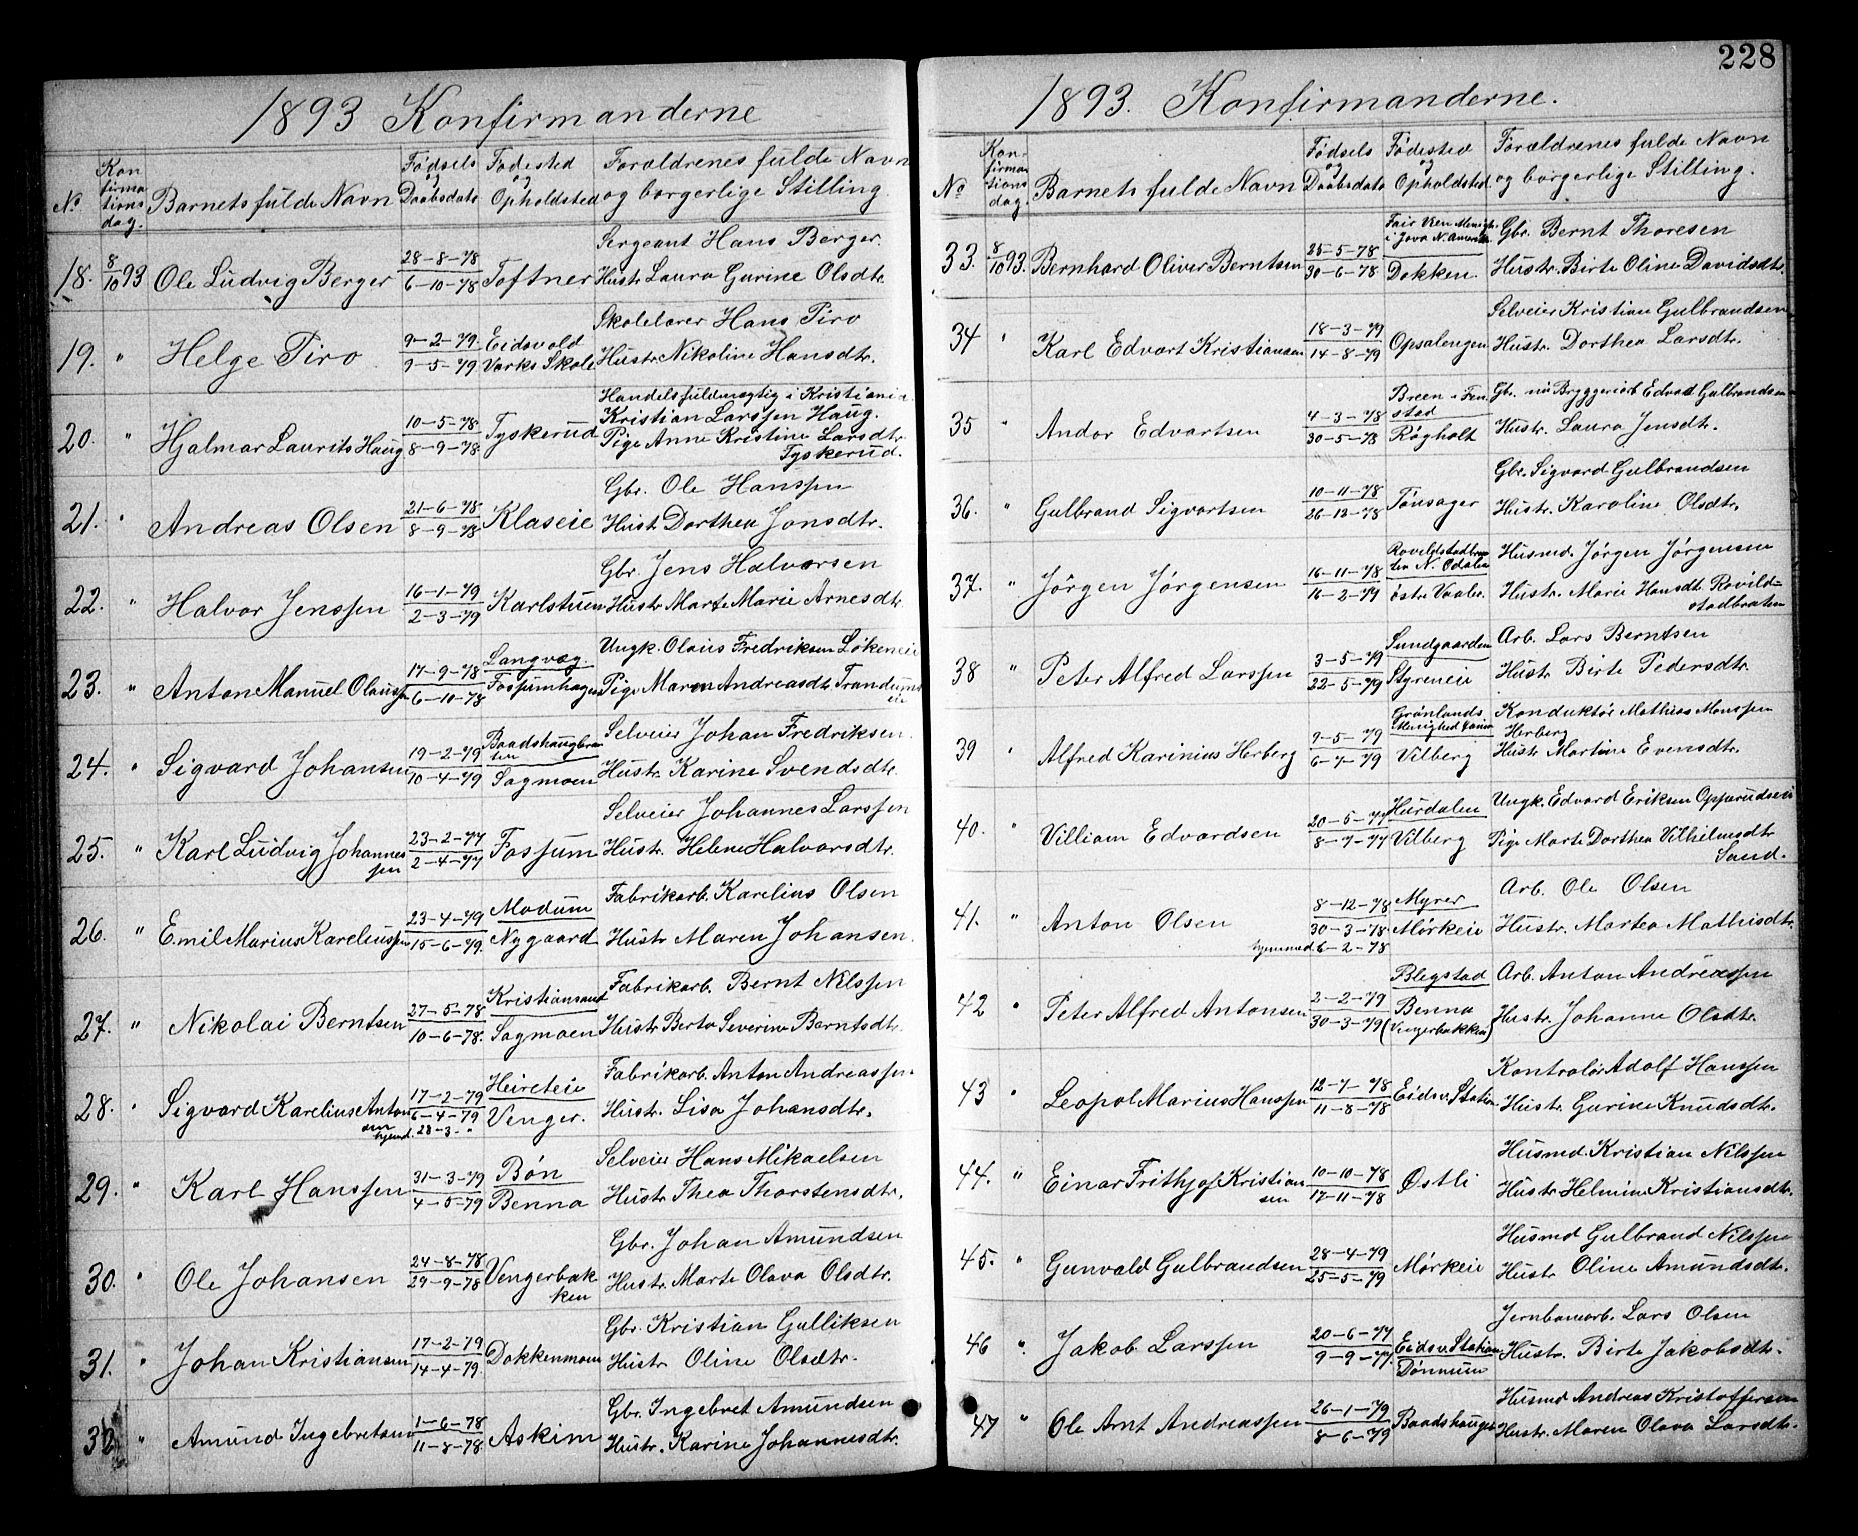 228
1893 Konfirmanderne
No
Kon
firma
tions
dag.
Barnets fulde Navn
Fødsels
og
Daabsdato
Fødested
og
Opholdsted
Forældrenes fulde Navn
og borgerlige Stilling.
18. 8/10 93 Ole Ludvig Berger
28-8-78
6-10-78
Toftner
Sergeant Hans Berger.
Hustr Laura Gurine Olsdtr.
19. " Helge Tiro
9-2-79.
9-5-79
Eidsvold
Værks Skole
Skolelærer Hans Tiro
Hustr. Nikoline Hansdtr.
20. " Hjalmar Laurits Haug
10-5-78
8-9-78.
Tyskerud
Handelsfuldmægtig i Kristiania
Kristian Larssen Haug.
Pige Anne Kristine Larsdtr.
Tyskerud.
21. " Andreas Olsen
21-6-78
8-9-78
Klaseie
Gbr. Ole Hanssen
Hustr Dorthea Jonsdtr.
22. " Halvor Jenssen
16-1-79
2-3-79
Karlstuen
Gbr. Jens Halvorsen
Hustr Marte Marie Arnesdtr
23. " Anton Manuel Olaussen
17-9-78
6-10-78
Langvæg.
Fossumhagen
Ungk. Olaus Fredriksen Løkeneie
Pige Maren Andreasdtr Trandums
eie
24. " Sigvard Johansen
19-2-79
10-4-79
Baadshaugbraa
ten
Sagmoen
Selveier Johan Fredriksen.
Hustr. Karine Svendsdtr.
25. " Karl Ludvig Johannes
sen
23-2-77
2-4-77
Fossum
Selveier Johannes Larssen
Hustr. Helene Halvorsdtr.
26. " Emil Marius Kareliussen
23-4-79
15-6-79.
Modum
Nygaard
Fabrikarb. Karelius Olsen
Hustr Maren Johansen.
27. " Nikolai Berntsen
27-5-78
10-6-78.
Kristiansand
Sagmoen
Fabrikarb. Bernt Nilssen
Hustr Berta Severine Berntsdtr.
28. " Sigvard Karelius Anton
sen
hjemd.
17-2-79
6-4-79
28-3-"
Heireteie
Venger.
Fabrikarb. Anton Andreassen.
Hustr. Lisa Johansdtr.
29. " Karl Hanssen
31-3-79
4-5-79
Bøn
Benna
Selveier Hans Mikaelsen
Hustr Thea Thorstensdtr.
30. " Ole Johansen
24-8-78
29-9-78
Vengerbak
ken
Gbr. Johan Amundsen
Hustr. Marte Olava Olsdtr.
31. " Johan Kristiansen
17-2-79
14-4-79.
Dokkenmoen
Gbr. Kristian Gulliksen
Hustr Oline Olsdtr.
32 " Amund Ingebretsen
1-6-78
11-8-78
Askim
Gbr. Ingebret Amundsen
Hustr. Karine Johannesdtr.
1893. Konfirmanderne.
No
Kon-
firma-
tions
dag.
Barnets fulde Navn
Fødsels
og
Daabsdato
Fødested
og
Opholdsted.
Forældrenes fulde Navn
og borgerlige Stilling.
33. 8/10 93. Bernhard Oliver Berntsen
25-5-78
30-6-78
i Jova N. Amerika
Dokken.
Gbr. Bernt Thoresen
Hustr. Birte Oline Davidsdtr.
34 " Karl Edvart Kristiansen
18-3-79
14-8-79
Opsalengen
Selveier Kristian Gulbrandsen
Hustr. Dorthea Larsdtr.
35 " Andor Edvartsen
4-3-78
30-5-78
Breen i Fen
stad
Røgholt
Gbr. nu Bryggeriarb Edvart Gulbrandsen
Hustr. Laura Jensdtr.
36. " Gulbrand Sigvartsen
10-11-78
26-12-78
Tønsager
Gbr. Sigvard Gulbrandsen
Hustr. Karoline Olsdtr.
37. " Jørgen Jørgensen
16-11-78
16-2-79
ten N. Odalen
østr Vaaler.
Husmd. Jørgen Jørgensen
Hustr. Marie Hansdtr Rovild-
stadbraaten
38 " Peter Alfred Larssen
3-5-79
22-5-79
Sundgaarden
Styreneie
Arb. Lars Berntsen
Hustr Birte Pedersdtr.
39 " Alfred Karinius Herberg
9-5-79
6-7-79
Grønlands
Menighed
Vilberg
Konduktør Mathias Monssen
Herberg
Hustr Martine Evensdtr.
40. " Villiam Edvardsen
20-5-77
8-7-77
Hurdalen
Vilberg
Ungk. Edvard Eriksen Opperudseie
Pige Marte Dorthea Vilhelmsdtr
Sand.
41. " Anton Olsen
hjemmed.
8-12-78
30-3-78
6-2-78
Myrer
Mørkeie
Arb. Ole Olsen
Hustr. Martea Mathisdtr.
42 " Peter Alfred Antonsen
2-2-79
30-3-79
Blegstad
Benna
(Vengerbakken)
Arb. Anton Andreassen
Hustr. Johanne Olsdtr.
43 " Leopol Marius Hanssen
12-7-78
11-8-78
Eidsv. Station
Kontrolør Adolf Hanssen
Hustr. Gurine Knudsdtr.
44. " Einar Frithjof Kristian
sen
10-10-78
17-11-78
Østli
Husmd. Kristian Nilssen
Hustr Helmine Kristiansdtr.
45. " Gunvald Gulbrandsen
28-4-79
25-5-79
Mørkeie
Husmd Gulbrand Nilssen
Hustr Oline Amundsdtr.
46 " Jakob Larssen
20-6-77
9-9-77.
Eidsv. Station
Dønnum
Jernbanearb. Lars Olsen
Hustr. Birte Jakobsdtr.
47 " Ole Arnt Andreassen
26-1-79
8-6-79
Baadshaugen
Husmd Andreas Kristoffersen
Hustr. Maren Olava Larsdtr.